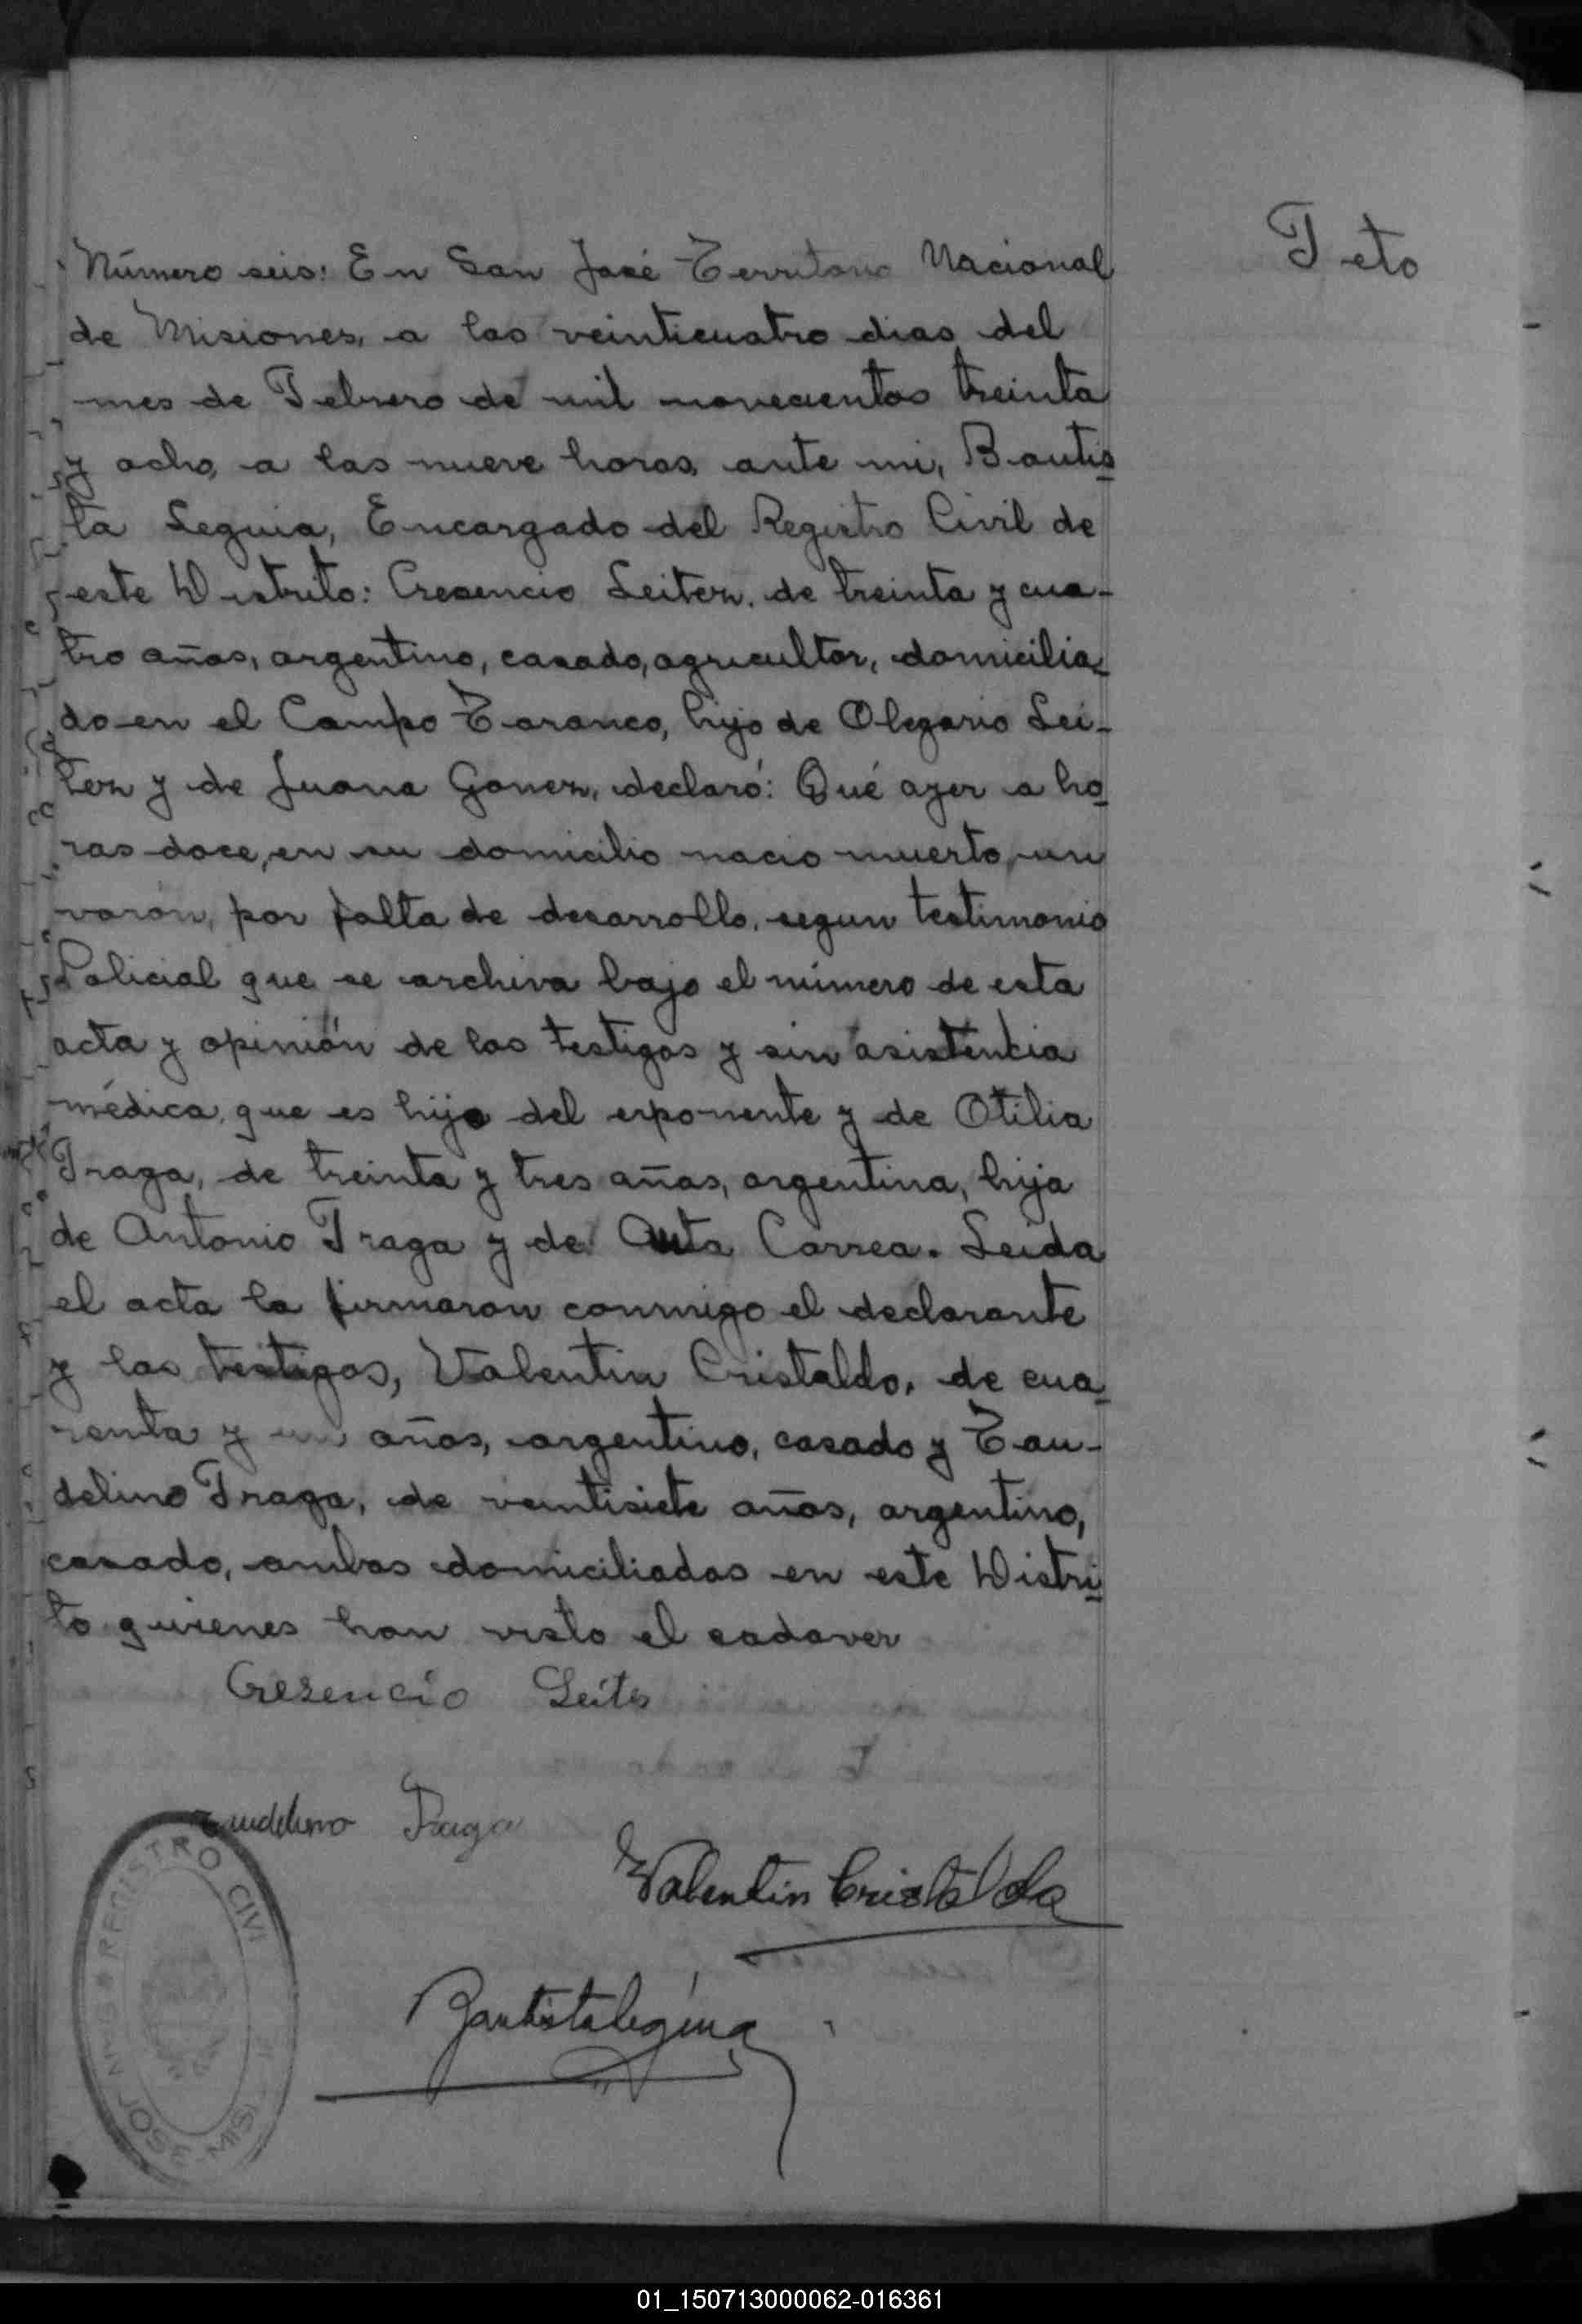 Feto
Número seis: En San José Territorio Nacional
de Misiones, a los veinticuatro dias del
mes de Febrero de mil novecientos treinta
y ocho, a las nueve horas, ante mi, Bautis
ta Seguia, Encargado del Registro Civil de
este Distrito: Cresencio Leitez, de treinta y cua-
tro años, argentino, casado, agricultor, domicilia
do en el Campo Taranco, hijo de Olegario Lei-
tez y de Juana Gomez, declaró: Qué ayer a ho
ras doce, en su domicilio nacio muerto, un
varón, por falta de desarrollo, segun testimonio
Policial que se archiva bajo el número de esta
acta y opinión de los testigos y sin asistencia
médica, que es hijo del exponente y de Otilia
Fraga, de treinta y tres años, argentina, hija
de Antonio Fraga y de Correa. Leida
el acta la firmaron conmigo el declarante
y los testigos, Valentin Cristaldo, de cua
renta y un años, argentino, casado y Tau-
delino Fraga, de veintisiete años, argentino,
casado, ambos domiciliados en este Distri
to quienes han visto el cadaver
Cresencio Leites
Fraga
Valentin Cristaldo
REGISTRO CIVIL
SAN JOSE - MIS
01_150713000062-016361